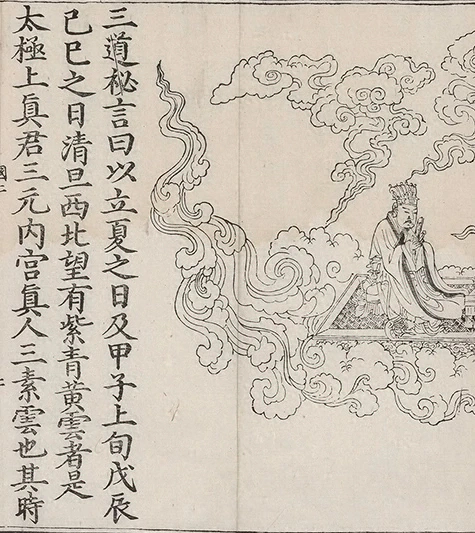 三道祕言曰以立夏之日及甲子上旬戊辰
己巳之日清旦西北望有紫青黃雲者是
太極上眞君三元內宮眞人三素雲也其時
國二